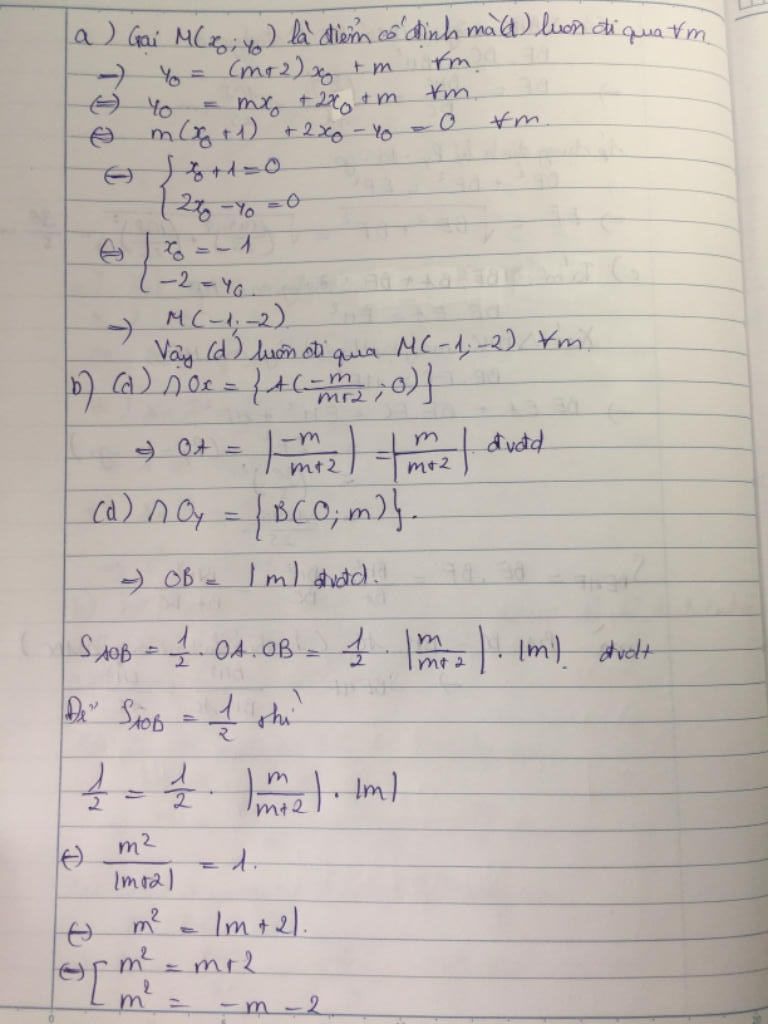 a) Gọi M(x₀; y₀) là điểm cố định mà (d) luôn đi qua ∀m.
→ y₀ = (m+2)x₀ + m ∀m.
⇔ y₀ = mx₀ + 2x₀ + m ∀m.
⇔ m(x₀ + 1) + 2x₀ - y₀ = 0 ∀m.
⇔ { x₀ + 1 = 0
2x₀ - y₀ = 0
⇔ { x₀ = -1
-2 = y₀.
→ M(-1; -2)
Vậy (d) luôn đi qua M(-1; -2) ∀m
b) (d) ∩ Ox = {A(-m/(m+2); 0)}
⇒ OA = |-m/(m+2)| = |m/(m+2)| đvđd
(d) ∩ Oy = {B(0; m)}.
⇒ OB = |m| đvđd.
S_AOB = 1/2 . OA.OB = 1/2 . |m/(m+2)| . |m|. đvdt
Để S_AOB = 1/2 thì
1/2 = 1/2 . |m/(m+2)| . |m|
⇔ m²/|m+2| = 1.
⇔ m² = |m+2|.
⇔ [ m² = m+2
m² = -m-2